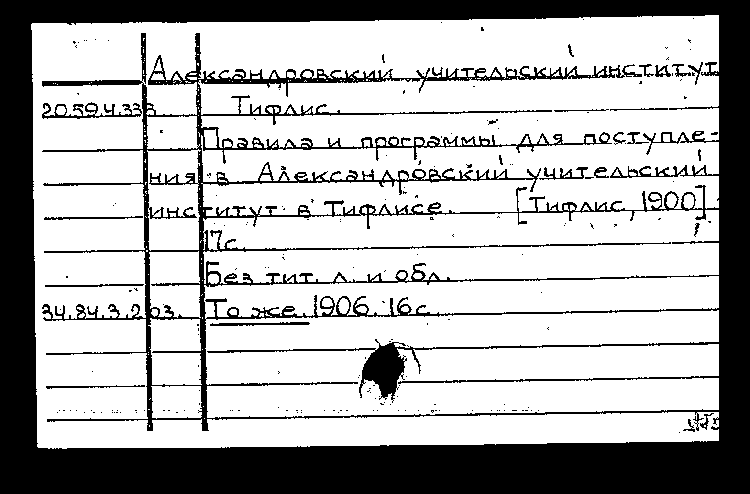 Александровский учительский институт
20.59.4.333 Тифлис.
Правила и программы для поступле-
ния в Александровский учительский
институт в Тифлисе. [Тифлис, 1900]
17с.
Без тит. л. и обл.
34.84.3.203. То же. 1906. 16с.